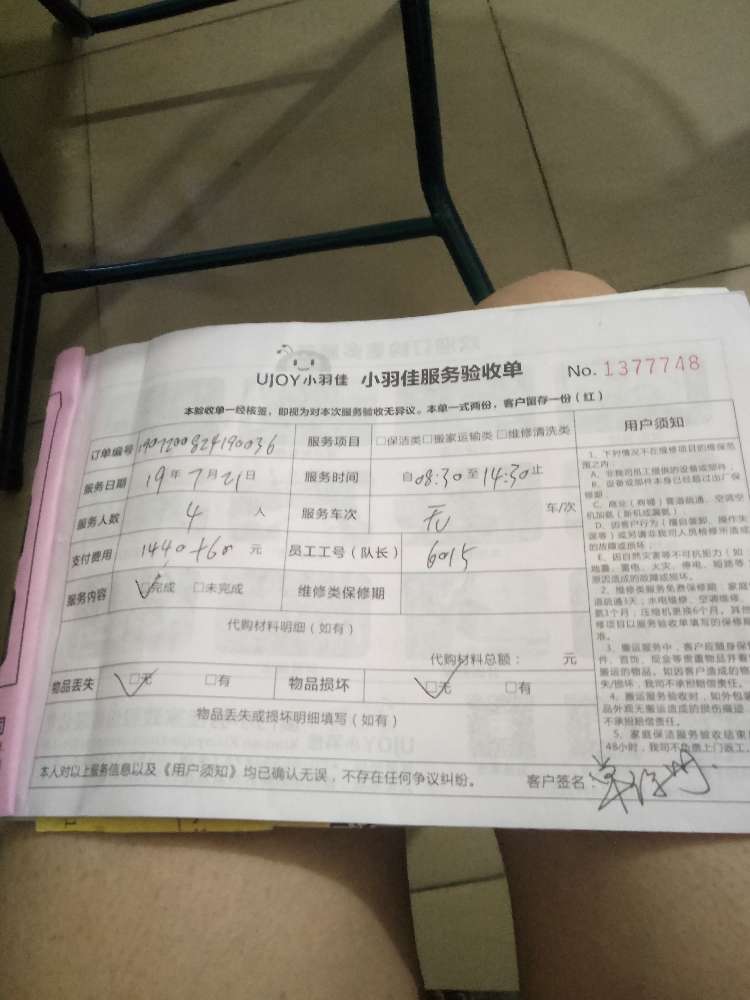 UJOY小羽佳 小羽佳服务验收单 No. 1377748
本验收单一经核签，即视为对本次服务验收无异议。本单一式两份，客户留存一份（红）
订单编号 1907200824190036 服务项目 □保洁类□搬家运输类□维修清洗类
服务日期 19年7月21日 服务时间 自08:30至14:30止
服务人数 4 人 服务车次 无 车/次
支付费用 1440+60 元 员工工号（队长） 6015
服务内容 □完成 □未完成 维修类保修期
代购材料明细（如有）
代购材料总额： 元
物品丢失 □无 □有 物品损坏 □无 □有
物品丢失或损坏明细填写（如有）
本人对以上服务信息以及《用户须知》均已确认无误，不存在任何争议纠纷。 客户签名：
用户须知
1、下列情况不在维修项目的维保范
围之内：
A、非我司员工提供的设备或部件；
B、设备或部件本身已经超过出厂保
修期
C、商业（商铺）管道疏通、空调空
机加氨（新机或漏氨）
D、因客户行为（擅自装卸、操作失
误等）或另请非我司人员检修所造成
的故障或损坏；
E、因自然灾害等不可抗拒力（如
地震、雷电、火灾、停电、短路等
原因造成的故障或损坏。
2、维修类服务免费保修期：家庭
道疏通3天；水电维修、空调维修、
氨3个月，压缩机更换6个月。其他
修项目以服务验收单填写的保修期
准。
3、搬运服务中，客户应随身保
件、首饰、现金等贵重物品并看
搬运的物品。如因客户造成的物
失/损坏，我司不承担赔偿责任。
4、搬运服务验收时，如外包装
品外观无搬运造成的损伤痕迹，
不承担赔偿责任。
5、家庭保洁服务验收结束
48小时，我司不负责上门返工。